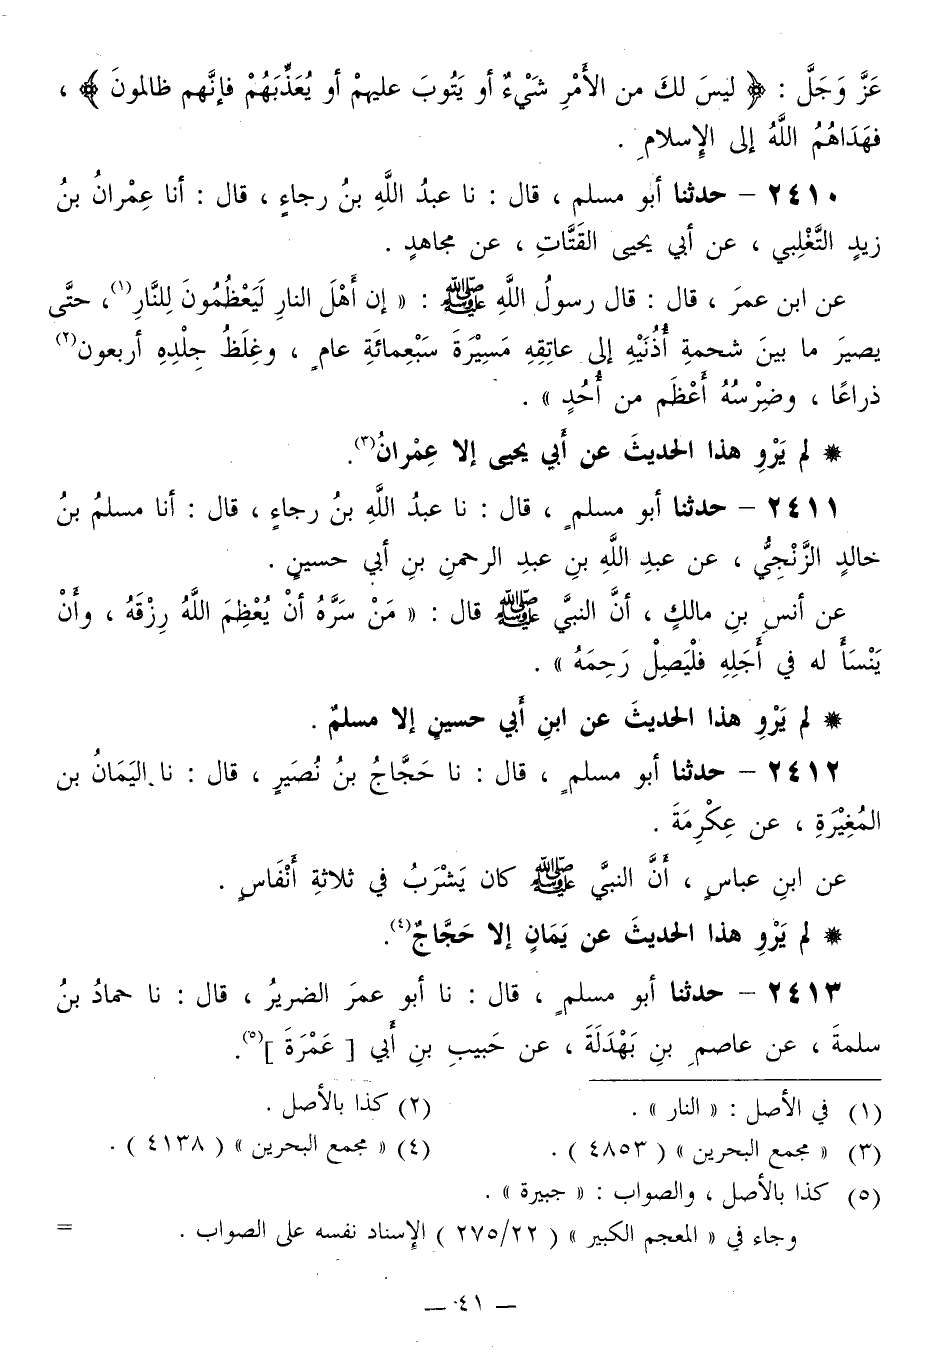 عَزَّ وَجَلَّ : ﴿ ليسَ لكَ من الأَمْرِ شَيْءٌ أو يَتُوبَ عليهمْ أو يُعَذِّبَهُمْ فإنَّهم ظالمونَ ﴾ ،
فهَدَاهُمُ اللَّهُ إلى الإِسلامِ .
٢٤١٠ – حدثنا أبو مسلم ، قال : نا عبدُ اللَّهِ بنُ رجاءٍ ، قال : أنا عِمْرانُ بنُ
زيدٍ التَّغْلِبي ، عن أبي يحيى القَتَّاتِ ، عن مجاهدٍ .
عن ابن عمرَ ، قال : قال رسولُ اللَّهِ ﷺ : « إن أَهْلَ النارِ لَيَعْظُمُونَ لِلنَّارِ(١)، حتَّى
يصيرَ ما بينَ شحمةِ أُذُنَيْهِ إلى عاتِقِهِ مَسِيْرَةَ سَبْعِمائَةِ عامٍ ، وغِلَظُ جِلْدِهِ أربعون(٢)
ذراعًا ، وضِرْسُهُ أَعْظَم من أُحُدٍ » .
* لم يَرْوِ هذا الحديثَ عن أَبي يحيى إلا عِمْرانُ(٣).
٢٤١١ – حدثنا أبو مسلمٍ ، قال : نا عبدُ اللَّهِ بنُ رجاءٍ ، قال : أنا مسلمُ بنُ
خالدٍ الزَّنْجِيُّ ، عن عبدِ اللَّهِ بنِ عبدِ الرحمنِ بنِ أبي حسينٍ .
عن أنسِ بنِ مالكٍ ، أنَّ النبيَّ ﷺ قال : « مَنْ سَرَّهُ أنْ يُعْظِمَ اللَّهُ رِزْقَهُ ، وأَنْ
يَنْسَأَ له في أَجَلِهِ فلْيَصِلْ رَحِمَهُ » .
* لم يَرْوِ هذا الحديثَ عن ابنِ أَبي حسينٍ إلا مسلمٌ .
٢٤١٢ – حدثنا أبو مسلمٍ ، قال : نا حَجَّاجُ بنُ نُصَيرٍ ، قال : نا اليَمَانُ بن
المُغِيْرَةِ ، عن عِكْرِمَةَ .
عن ابنِ عباسٍ ، أَنَّ النبيَّ ﷺ كان يَشْرَبُ في ثلاثةِ أَنْفَاسٍ .
* لم يَرْوِ هذا الحديثَ عن يَمَانٍ إلا حَجَّاجٌ(٤).
٢٤١٣ – حدثنا أبو مسلمٍ ، قال : نا أبو عمرَ الضريرُ ، قال : نا حمادُ بنُ
سلمةَ ، عن عاصمِ بنِ بَهْدَلَةَ ، عن حَبيبِ بنِ أَبي [ عَمْرَةَ ](٥).
(١) في الأصل : « النار » . (٢) كذا بالأصل .
(٣) « مجمع البحرين » ( ٤٨٥٣ ) . (٤) « مجمع البحرين » ( ٤١٣٨ ) .
(٥) كذا بالأصل ، والصواب : « جبيرة » .
وجاء في « المعجم الكبير » ( ٢٧٥/٢٢ ) الإسناد نفسه على الصواب . =
— ٤١ —